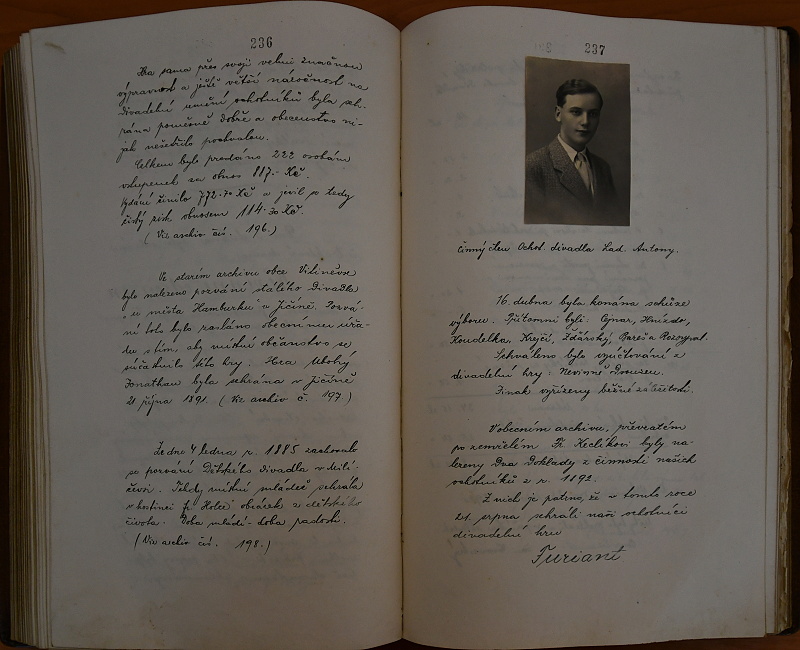 236
Hra sama přes svoji velmi značnou
výpravnost a ještě větší náročnost na
divadelní umění ochotníků byla seh-
rána poměrně dobře a obecenstvo ni-
jak nešetřilo pochvalou.
Celkem bylo prodáno 222 osobám
vstupenek za obnos 817.- Kč.
Vydání činilo 772.70 Kč a jevil se tedy
čistý zisk obnosem 114.30 Kč.
(Viz archiv čís. 196.)
Ve starém archivu obce Vitiněvse
bylo nalezeno pozvání stálého divadla
„u města Hamburku" v Jičíně. Pozvá-
ní toto bylo zasláno obecnímu úřa-
du s tím, aby místní občanstvo se
súčastnilo této hry: Hra Ubohý
Jonathan byla sehrána v Jičíně
21 října 1891. (Viz archiv č. 197.)
Ze dne 4 ledna r. 1885 zachovalo
se pozvání Dětského divadla v Mili-
čevsi. Tehdy místní mládež sehrála
v hostinci Fr. Holce obrázek z dětského
života. Doba mládí - doba radosti.
(Viz archiv čís. 198.)
237
činný člen Ochot. divadla Lad. Antony.
16. dubna byla konána schůze
výboru. Přítomni byli: Cejnar, Hnízdo,
Koudelka, Krejčí, Žďárský, Bareš a Rozsypal.
Schváleno bylo vyúčtování z
divadelní hry: Nevinně Souzen.
Jinak vyřízeny běžné záležitosti.
V obecním archivu, převzatém
po zemřelém Fr. Keclíkovi byly na-
lezeny dva doklady z činnosti našich
ochotníků z r. 1892.
Z nich je patrno, že v tomto roce
21. srpna sehráli naši ochotníci
divadelní hru
Furiant